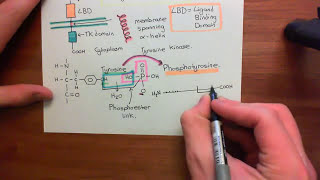 LBD
TK domain
COOH
Cytoplasm
membrane
spanning
α-helix
LBD = Ligand
Binding
Domain
Tyrosine Kinase.
Tyrosine
Phosphotyrosine
H-N
H-C-C
C=O
O
P-OH
H₂O
Phosphoester
link.
H₂N
COOH